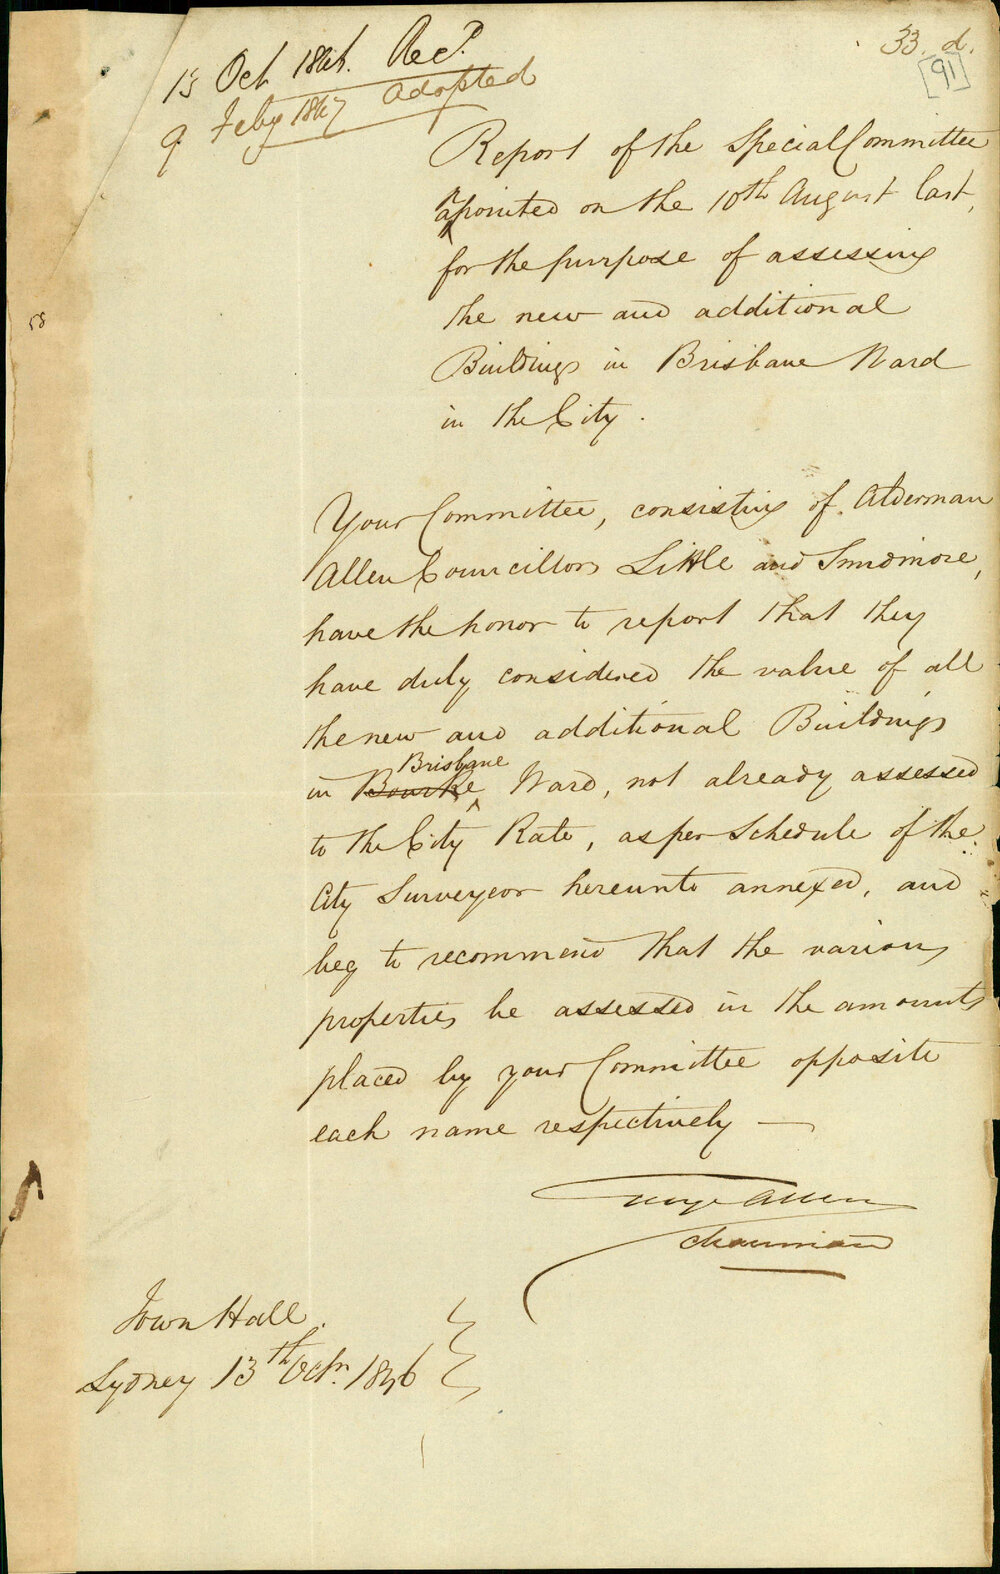 15 Oct 1846. Recd.
9 Feby 1847 adopted
33. d.
[91]
Report of the Special Committee
appointed on the 10th August last,
for the purpose of assessing
the new and additional
Buildings in Brisbane Ward
in the City.
Your Committee, consisting of Alderman
Allen Councillors Little and Smidmore,
have the honor to report that they
have duly considered the value of all
the new and additional Buildings
in Bourke Brisbane Ward, not already assessed
to the City Rate, as per Schedule of the
City Surveyor hereunto annexed, and
beg to recommend that the various
properties be assessed in the amounts
placed by your Committee opposite
each name respectively —
George Allen
Chairman
Town Hall.
Sydney 13th Octr. 1846